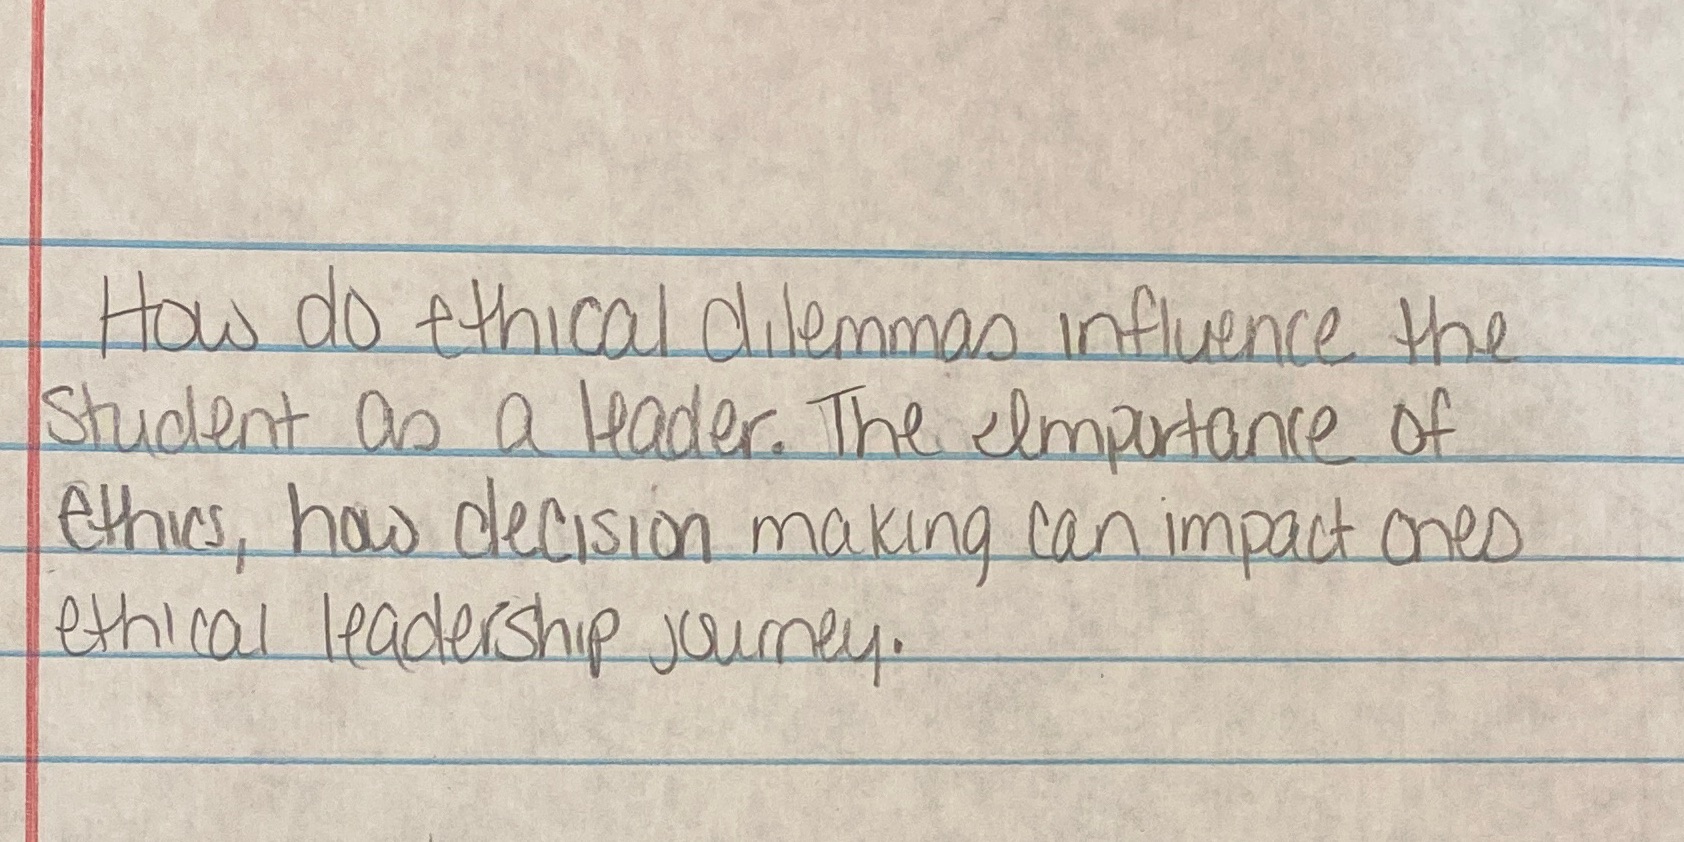 How do ethical dilemmas influence the
student as a leader. The Importance of
ethics, how decision making can impact ones
ethical leadership journey.